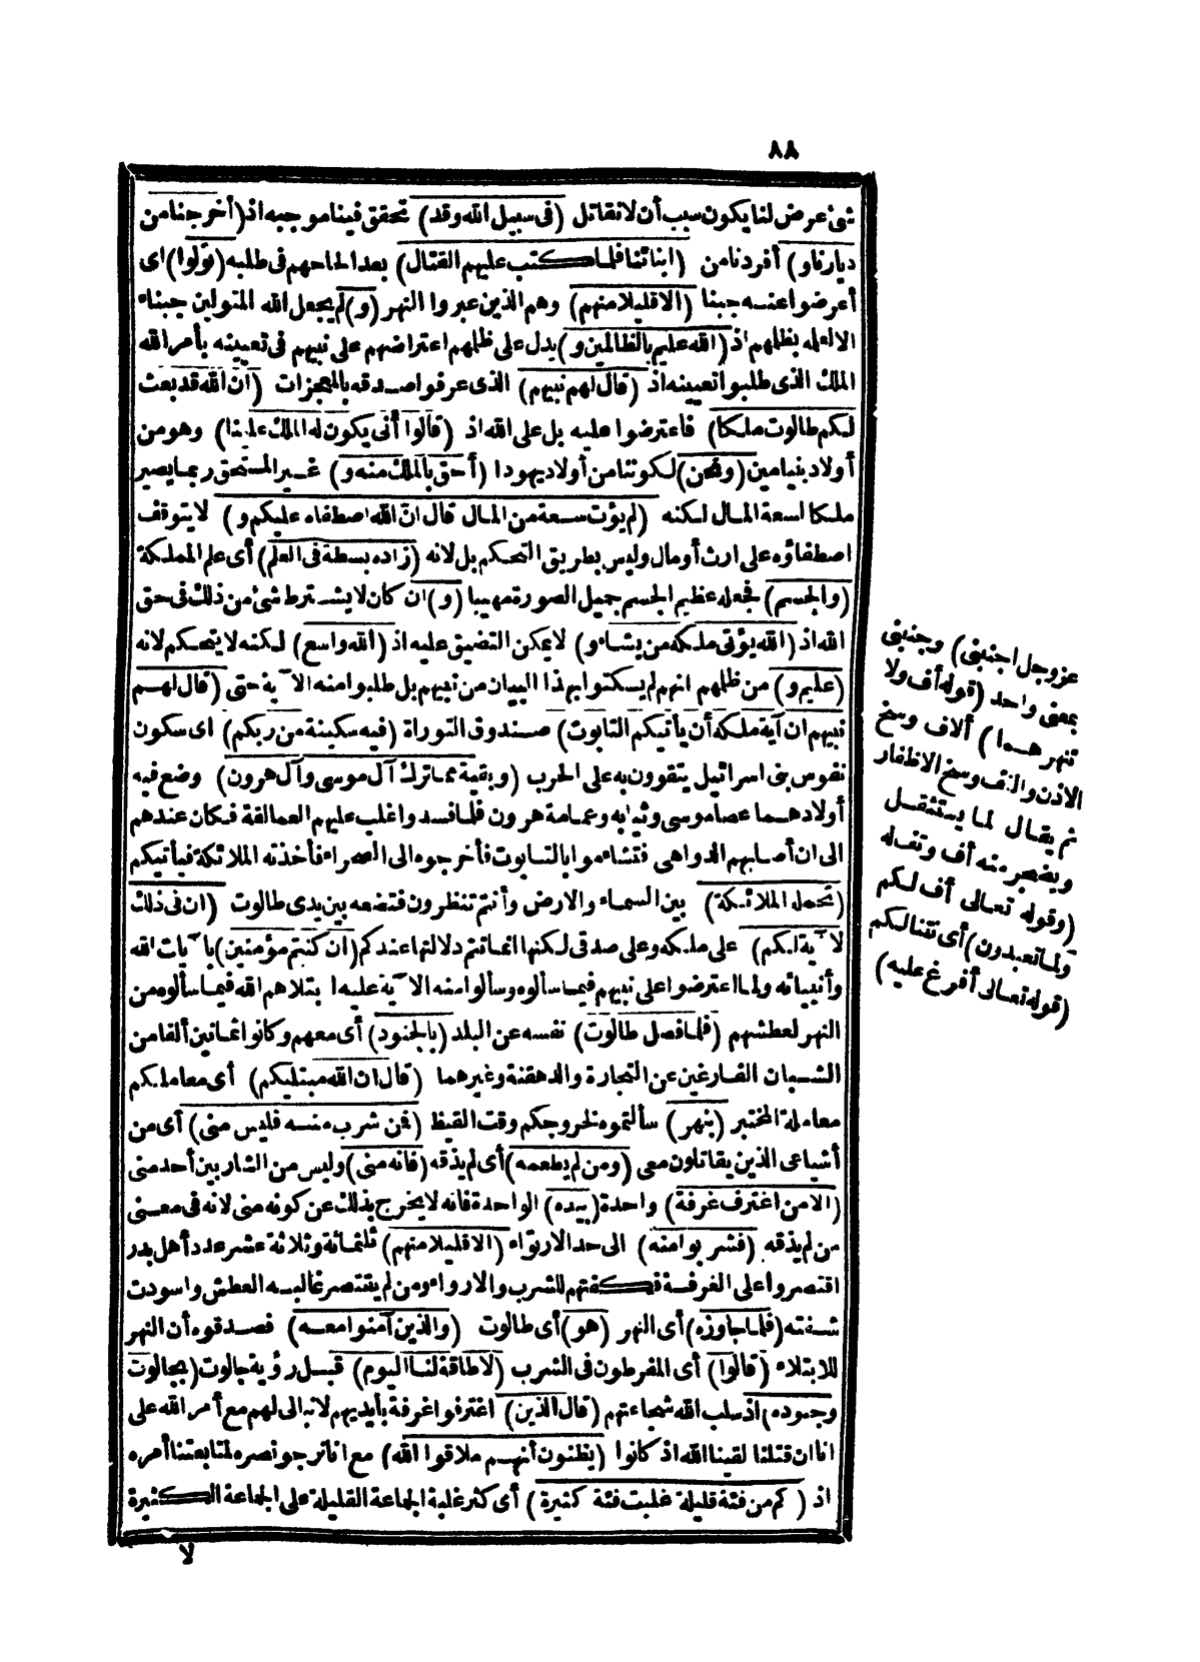 ٨٨
شئ عرض لنا يكون سبب أن لا نقاتل (فى سبيل الله وقد) تحقق فينا موجبه اذ (أخرجنا من
ديارنا و) أفردنا من (ابنائنا فلما كتب عليهم القتال) بعد الحاحهم فى طلبه (تولوا) اى
أعرضوا عنه جبنا (الا قليلا منهم) وهم الذين عبروا النهر (و) لم يجعل الله المتولين جبناء
الا لعلمه بظلمهم اذ (الله عليم بالظالمين و) يدل على ظلمهم اعتراضهم على نبيهم فى تعيينه بأمر الله
الملك الذى طلبوا تعيينه اذ (قال لهم نبيهم) الذى عرفوا صدقه بالمعجزات (ان الله قد بعث
لكم طالوت ملكا) فاعترضوا عليه بل على الله اذ (قالوا أنى يكون له الملك علينا) وهو من
أولاد بنيامين (ونحن) لكوننا من أولاد يهودا (أحق بالملك منه و) غير المستحق ربما يصير
ملكا لسعة المال لكنه (لم يؤت سعة من المال قال انّ الله اصطفاه عليكم و) لا يتوقف
اصطفاؤه على ارث أو مال وليس بطريق التحكم بل لانه (زاده بسطة فى العلم) أى علم المملكة
(والجسم) فجعله عظيم الجسم جميل الصورة مهيبا (و) ان كان لا يشترط شئ من ذلك فى حق
الله اذ (الله يؤتى ملكه من يشاء و) لا يمكن التضيق عليه اذ (الله واسع) لكنه لا يتحكم لانه
(عليم و) من ظلمهم انهم لم يسكتوا بهذا البيان من نبيهم بل طلبوا منه الآية حتى (قال لهم
نبيهم ان آية ملكه أن يأتيكم التابوت) صندوق التوراة (فيه سكينة من ربكم) اى سكون
نفوس بنى اسرائيل يتقوون به على الحرب (وبقية مما ترك آل موسى وآل هرون) وضع فيه
أولادهما عصا موسى وثيابه وعمامة هرون فلما فسدوا غلب عليهم العمالقة فكان عندهم
الى ان أصابهم الدواهى فتشاءموا بالتابوت فأخرجوه الى الصحراء فأخذته الملائكة فيأتيكم
(تحمله الملائكة) بين السماء والارض وأنتم تنظرون فتضعه بين يدى طالوت (ان فى ذلك
لآية لكم) على ملكه وعلى صدقى لكنها انما تتم دلالتها عندكم (ان كنتم مؤمنين) بآيات الله
وأنبيائه ولما اعترضوا على نبيهم فيما سألوه وسألوا منه الآية عليه ابتلاهم الله فيما سألوه من
النهر لعطشهم (فلما فصل طالوت) نفسه عن البلد (بالجنود) أى معهم وكانوا ثمانين ألفا من
الشبان الفارغين عن التجارة والدهقنة وغيرهما (قال ان الله مبتليكم) أى معاملكم
معاملة المختبر (بنهر) سألتموه لخروجكم وقت القيظ (فمن شرب منه فليس منى) أى من
أشياعى الذين يقاتلون معى (ومن لم يطعمه) أى لم يذقه (فانه منى) وليس من الشاربين أحد منى
(الا من اغترف غرفة) واحدة (بيده) الواحدة فانه لا يخرج بذلك عن كونه منى لانه فى معنى
من لم يذقه (فشربوا منه) الى حد الارتواء (الا قليلا منهم) ثلثمائة وثلاثة عشر عدد أهل بدر
اقتصروا على الغرفة فكفتهم للشرب والارواء ومن لم يقتصر غالبه العطش واسودت
شفته (فلما جاوزه) أى النهر (هو) أى طالوت (والذين آمنوا معه) فصدقوه أن النهر
للابتلاء (قالوا) أى المفرطون فى الشرب (لا طاقة لنا اليوم) قبل رؤية جالوت (بجالوت
وجنوده) اذ سلب الله شجاعتهم (قال الذين) اغترفوا غرفة بأيديهم لا نبالى لهم مع أمر الله على
انا ان قتلنا لقينا الله اذ كانوا (يظنون أنهم ملاقوا الله) مع انا نرجو نصره لمتابعتنا أمره
اذ (كم من فئة قليلة غلبت فئة كثيرة) أى كثر غلبة الجماعة القليلة على الجماعة الكثيرة
لا
عز وجل اجنبنى) وجنبنى
بمعنى واحد (قوله أف ولا
تنهرهما) ألاف وسخ
الاذن والتف وسخ الاظفار
ثم يقال لما يستثقل
ويضجر منه أف وتف له
(وقوله تعالى أف لكم
ولما تعبدون) أى تفا لكم
(قوله تعالى أفرغ عليه)